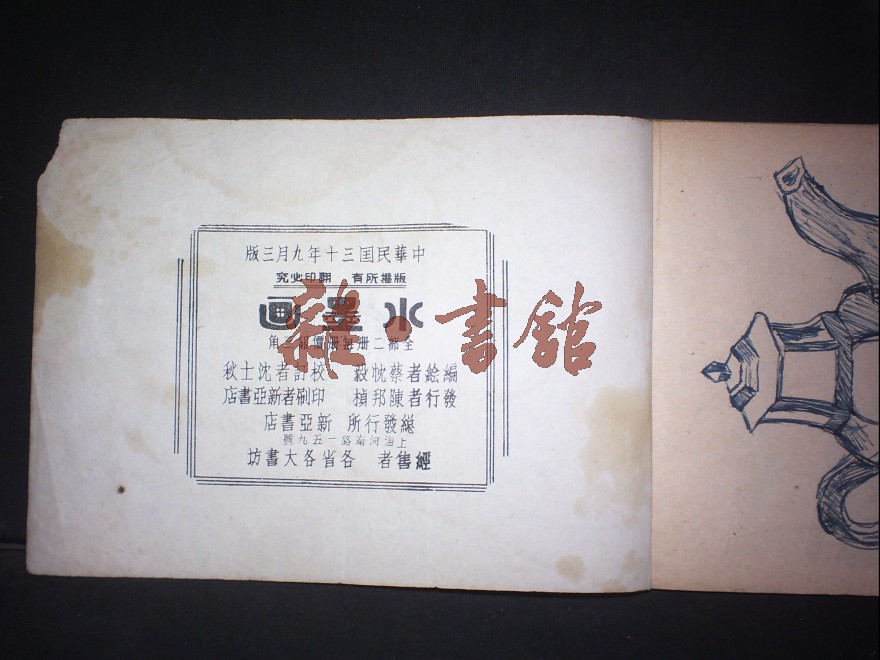 中華民囯三十年九月三版
版權所有 翻印必究
水墨画
全部二册每册價 角
編絵者蔡忱毅 校訂者沈士秋
發行者陳邦楨 印刷者新亞書店
總發行所 新亞書店
上海河南路一五九號
經售者 各省各大書坊
雜·書館